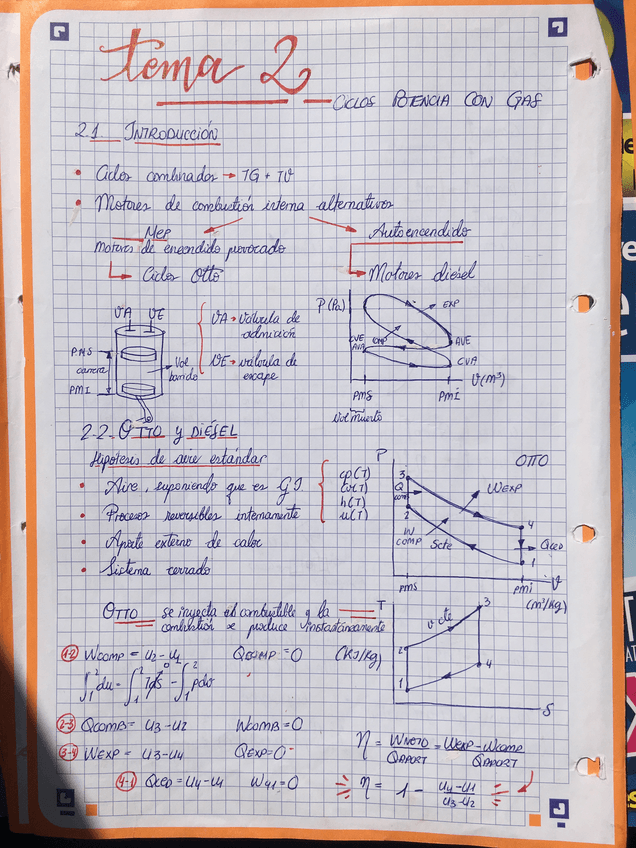 tema 2
CICLOS POTENCIA CON GAS
2.1. INTRODUCCIÓN
• Ciclos combinados → TG + TV
• Motores de combustión interna alternativos
MEP
Motores de encendido provocado
Ciclos Otto
Autoencendido
Motores diésel
VA VE
PMS
carrera
PMI
Vol barrido
VA → válvula de admisión
VE → válvula de escape
P(Pa)
EXP
CVE
AVA
COMP
AVE
CVA
V(m³)
PMS PMI
Vol muerto
2.2. OTTO Y DIÉSEL
Hipótesis de aire estándar
• Aire, suponiendo que es G.I.
• Procesos reversibles internamente
• Aporte externo de calor
• Sistema cerrado
cp(T)
cv(T)
h(T)
u(T)
P
OTTO
3
Q
COMB
2
WEXP
W
COMP
Scte
4
QCED
1
PMS PMI
v
(m³/kg)
OTTO se inyecta el combustible y la
combustión se produce instantáneamente
T
v cte
3
2
4
1
S
1-2 WCOMP = u2 - u1 QCOMP = 0 (KJ/kg)
∫₁² du = ∫₁² Tds⁰ - ∫₁² pdv
2-3 QCOMB = u3 - u2 WCOMB = 0
3-4 WEXP = u3 - u4 QEXP = 0
4-1 QCED = u4 - u1 W41 = 0
η = WNETO / QAPORT = WEXP - WCOMP / QAPORT
η = 1 - u4 - u1 / u3 - u2